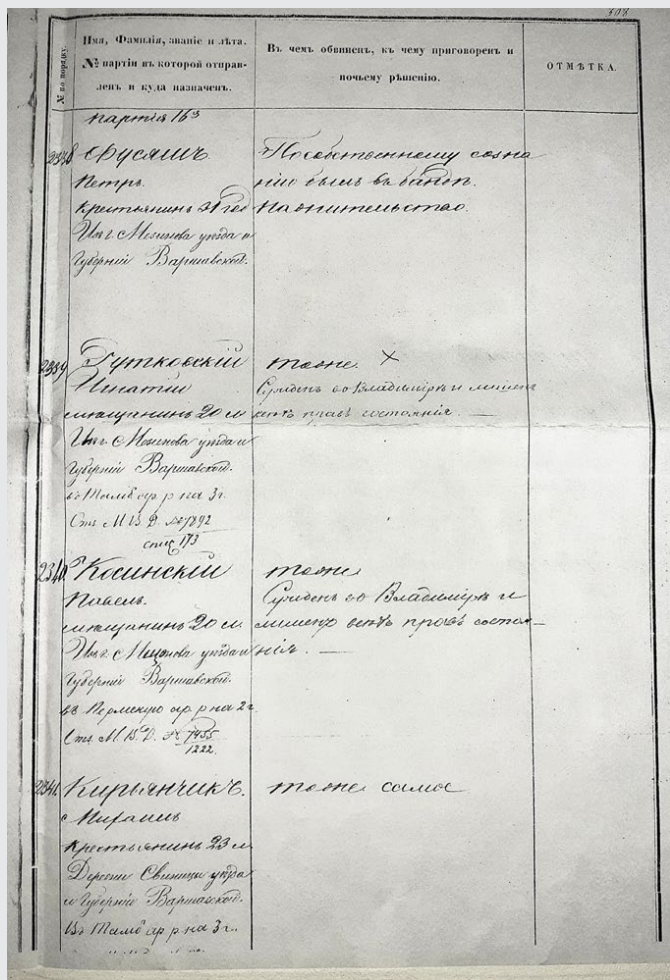 308
№ по порядку.
Имя, Фамилія, званіе и лѣта.
№ партіи въ которой отправ-
ленъ и куда назначенъ.
Въ чемъ обвиненъ, къ чему приговоренъ и
почьему рѣшенію.
ОТМѢТКА.
партія 163
2338
Петръ
крестьянинъ 31 год
Губерніи Варшавской.
По собственному созна
нію былъ въ бандѣ.
2339 Гутковскій
Игнатій
мѣщанинъ 20 л
Губерніи Варшавской.
въ Тамб ар р на 3 г.
Отз М. В. Д. № 7892
спис 173
тоже. X
Сужденъ во Владимірѣ и лишенъ
всѣхъ правъ состоянія. —
2340. Косинскій
Павелъ.
мѣщанинъ 20 л.
Губерніи Варшавской.
въ Пермскую ар. р на 2 г.
Отз М. В. Д. № 7455
1222.
тоже
Сужденъ во Владимірѣ и
лишенъ всѣхъ правъ состоя—
нія. —
2341. Кирьянчикъ.
Михаилъ
крестьянинъ 23 л.
Деревни Свиницы уѣзда
и Губерніи Варшавской.
Въ Тамб ар р на 3 г.
тоже самое